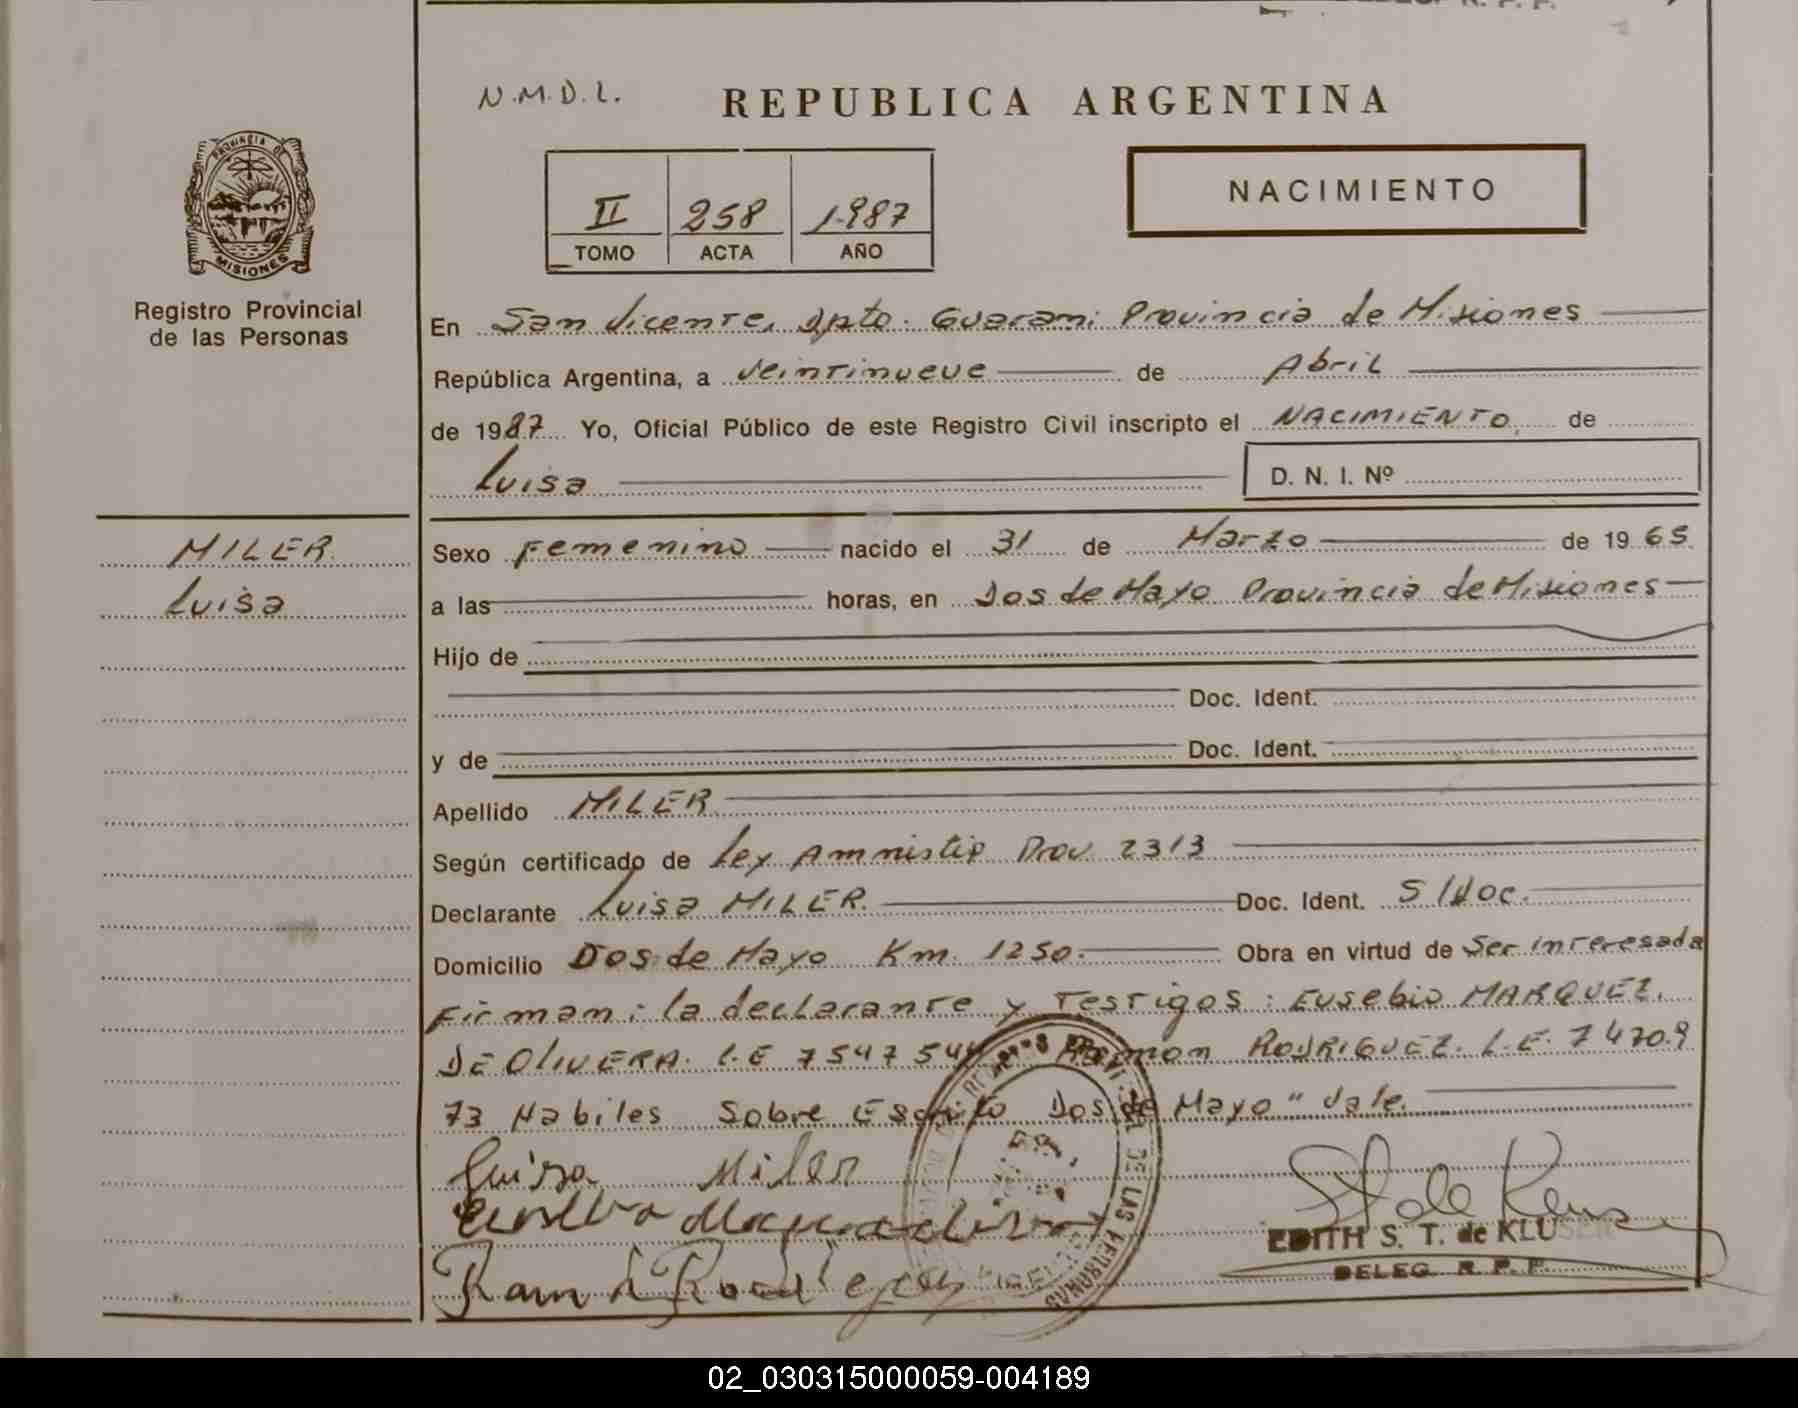 N.M.D.L.
REPUBLICA ARGENTINA
II 258 1.987
TOMO ACTA AÑO
NACIMIENTO
PROVINCIA DE
MISIONES
Registro Provincial
de las Personas
En San Vicente, Dpto. Guarani Provincia de Misiones
República Argentina, a veintinueve de Abril
de 1987 Yo, Oficial Público de este Registro Civil inscripto el NACIMIENTO de
Luisa D. N. I. Nº
MILER
Luisa
Sexo Femenino nacido el 31 de Marzo de 1965
a las horas, en Dos de Mayo Provincia de Misiones
Hijo de
Doc. Ident.
y de Doc. Ident.
Apellido MILER
Según certificado de Ley Amnistia Prov. 2313
Declarante Luisa MILER. Doc. Ident. S/doc.
Domicilio Dos de Mayo Km. 1250. Obra en virtud de Ser interesada
Firman: la declarante y Testigos: Eusebio MARQUEZ.
DE OLIVERA. L.E 7547544 Ramon RODRIGUEZ. L.E. 7470.9
73 Habiles Sobre Escrito Dos de Mayo" Vale.
Luisa Miler
Ramón Rodriguez
EDITH S. T. de KLUSENER
DELEG. R. P. P.
DE LAS PERSONAS
02_030315000059-004189